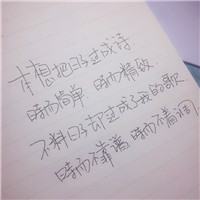 本想把日子过成诗
时而简单 时而精致
不料日子却过成了我的歌
时而不靠谱 时而不着调